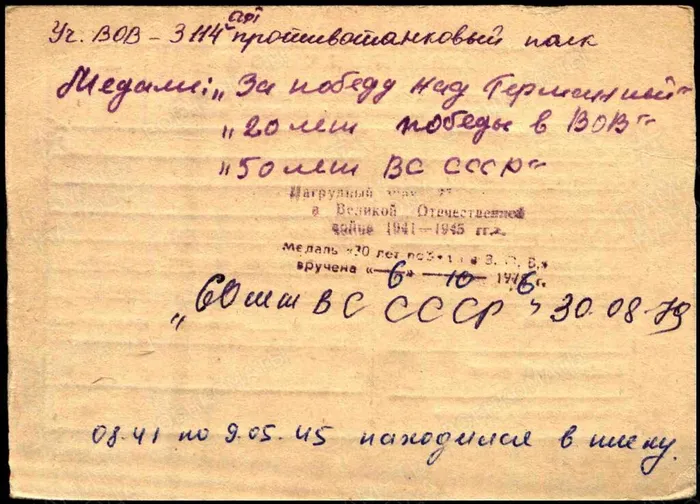 Уч. ВОВ - 3 114 арт противотанковый полк
Медали: „За победу над Германией"
„20 лет победы в ВОВ"
„50 лет ВС СССР"
Нагрудный знак
в Великой Отечественной
войне 1941—1945 гг.
Медаль «30 лет победы в В. О. В.»
вручена «6» 10 1976
„60 лет ВС СССР" 30.08.79
08.41 по 9.05.45 находился в плену.